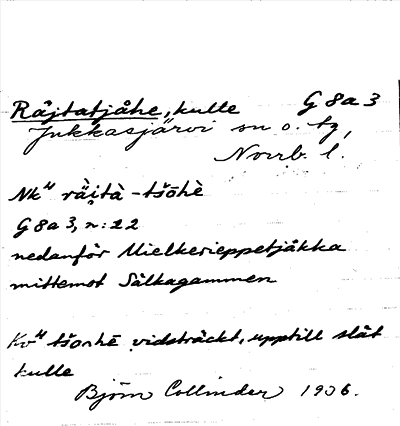 Råjtatjåhe, kulle G 8 a 3
Jukkasjärvi sn o. tg,
Norrb. l.
Nk" rä̀i̯tà - tšōhè
G 8 a 3, n:22
nedanför Mielkerieppetjåkka
mittemot Sälkagammen
Kv" tšorhē vidsträckt, upptill slät
kulle
Björn Collinder 1936.